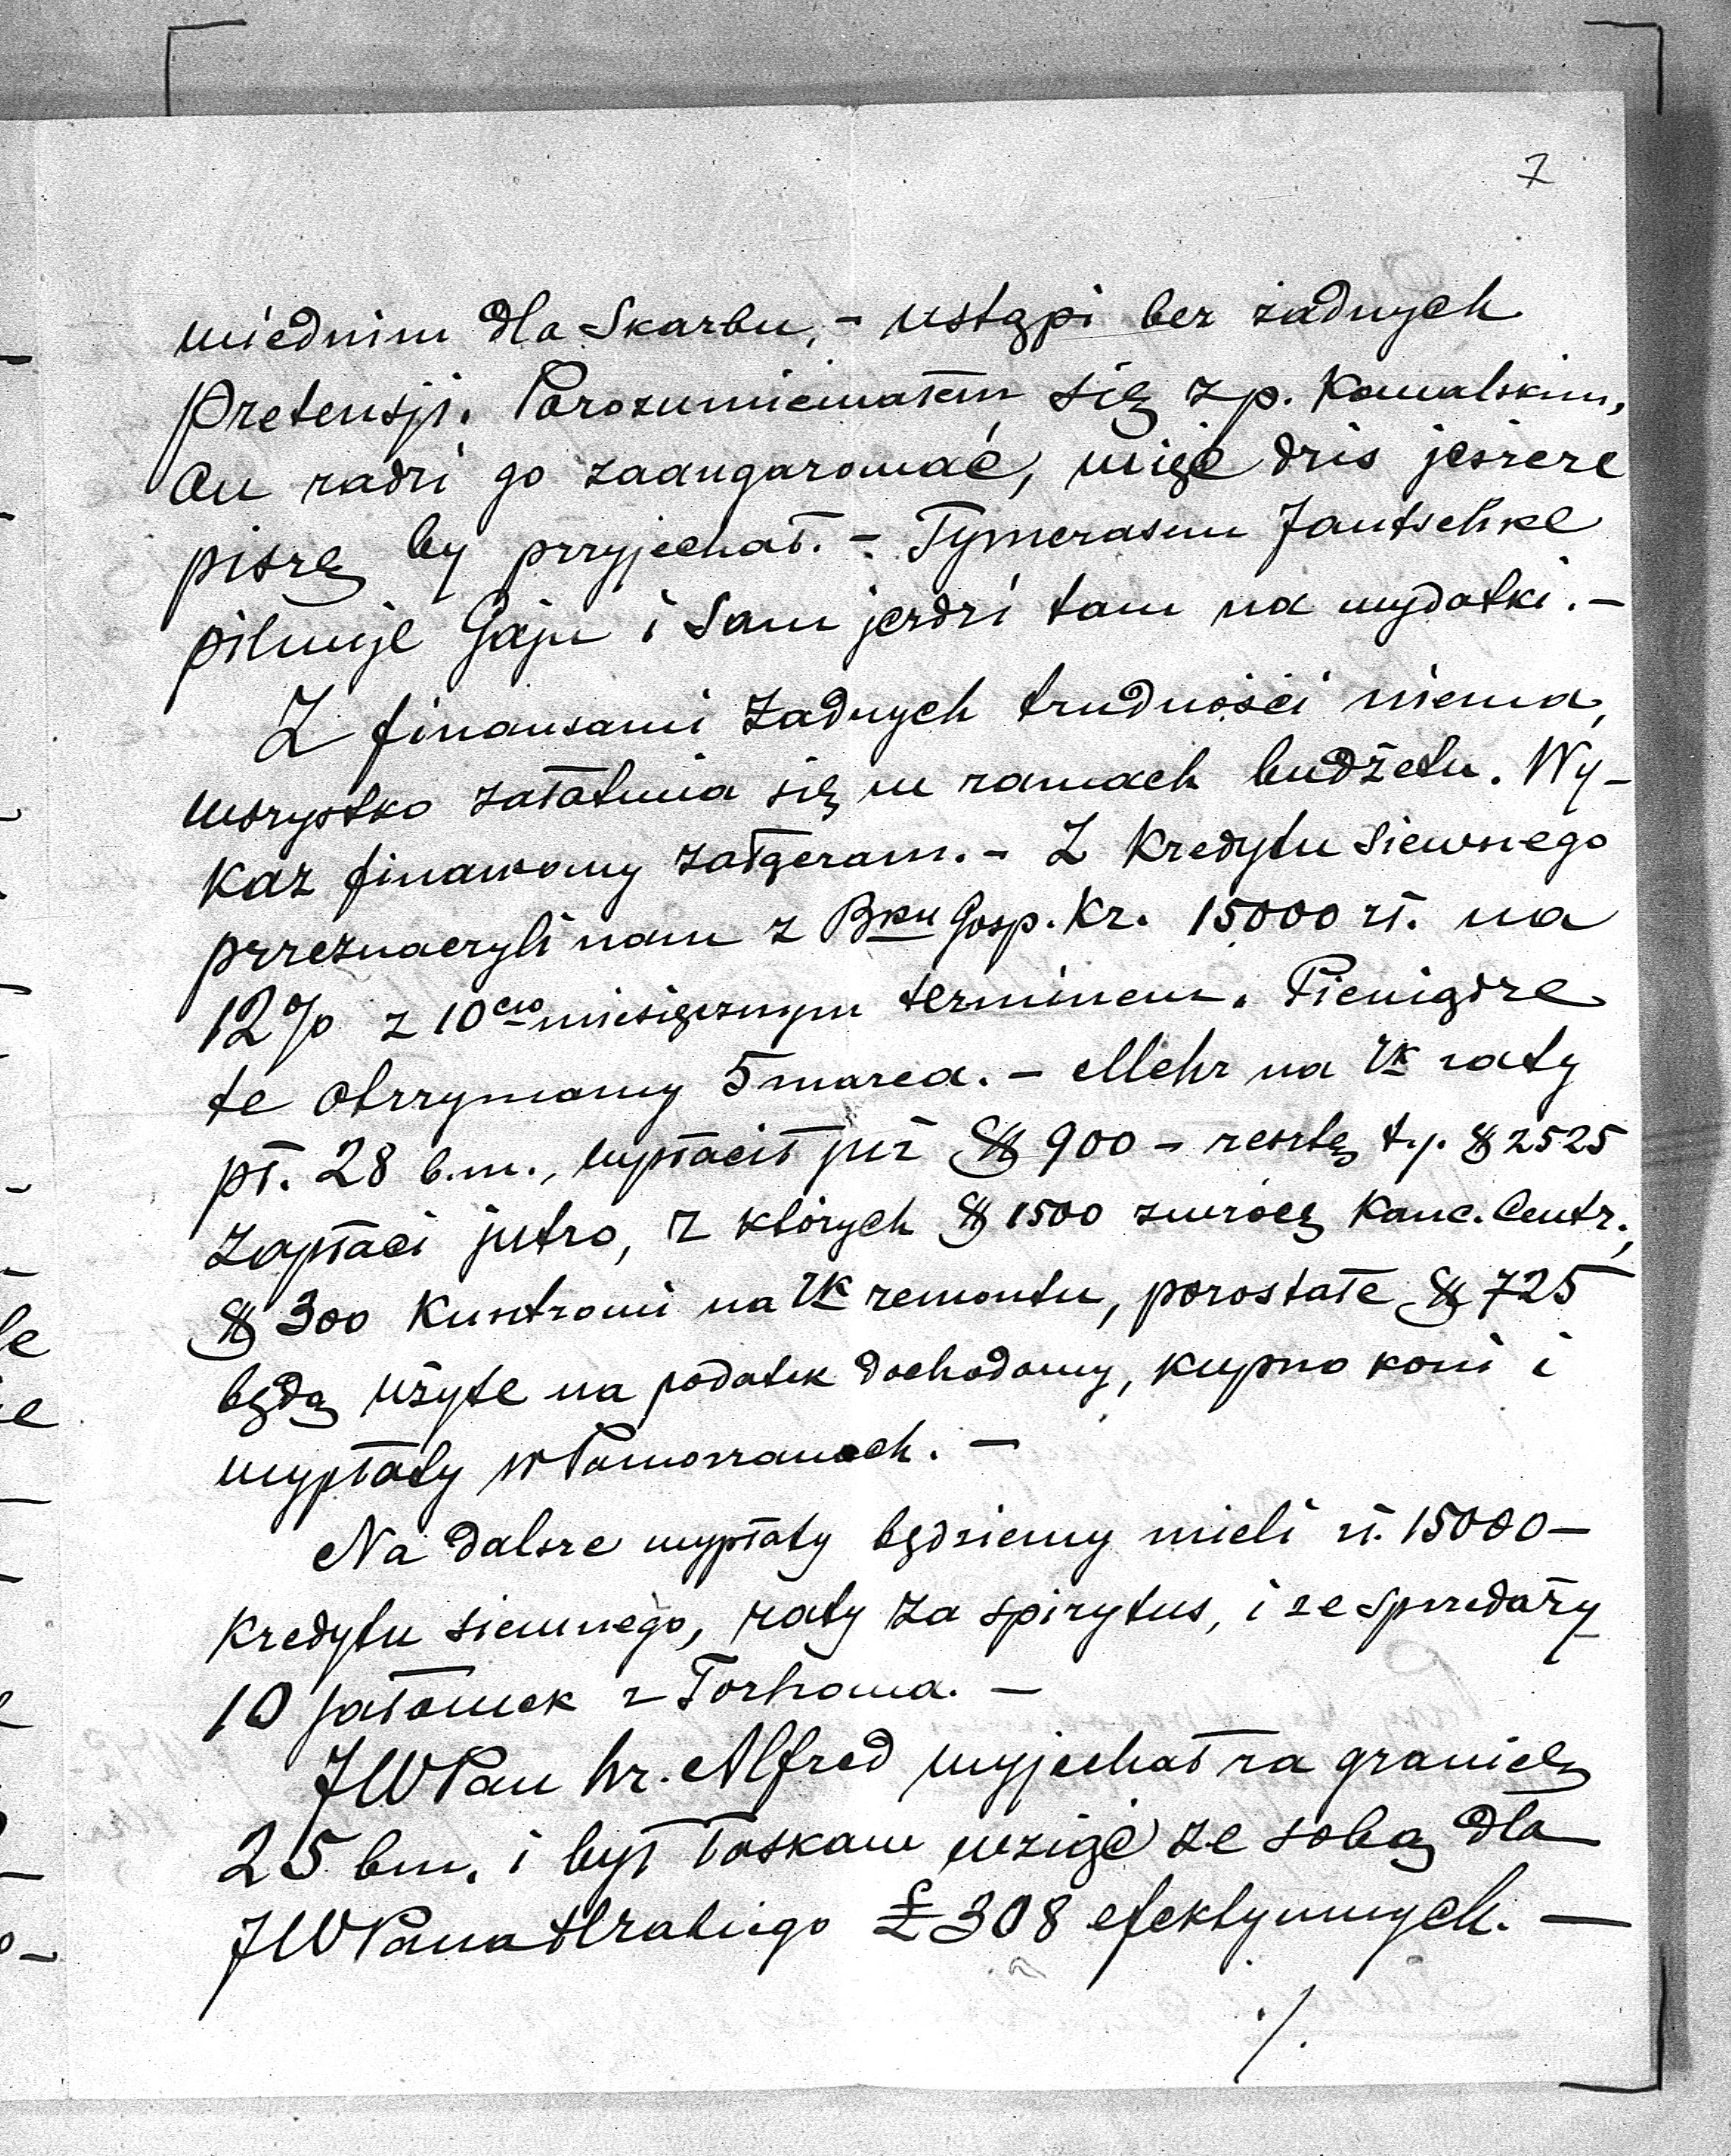 7
wiednim dla Skarbu, – ustąpi bez żadnych
pretensji. Porozumiewałem się z p. Kowalskim,
on radzi go zaangażować, więc dziś jeszcze
piszę by przyjechał. – Tymczasem Jantschke
pilnuje Gaju i sam jeździ tam na wydatki. –
Z finansami żadnych trudności niema,
wszystko załatwia się w ramach budżetu. Wy-
kaz finansowy załączam. – Z kredytu siewnego
przeznaczyli nam z Bku Gosp. Kr. 15000 zł. na
12% z 10cio miesięcznym terminem. Pieniądze
te otrzymamy 5 marca. – Mehr na rk raty
pł. 28 b.m., wpłacił już $ 900 – resztę t.j. $ 2525
zapłaci jutro, z których $ 1500 zwrócę Kanc. Centr.,
$ 300 Kusztrowi na rk remontu, pozostałe $ 725
będą użyte na podatek dochodowy, kupno koni i
wypłaty w Pomorzanach. –
Na dalsze wypłaty będziemy mieli zł. 15000 –
kredytu siewnego, raty za spirytus, i ze sprzedaży
10 jałówek z Torhowa. –
JWPan hr. Alfred wyjechał za granicę
25 bm. i był łaskaw wziąć ze sobą dla
JWPana Hrabiego £ 308 efektywnych. –
./.